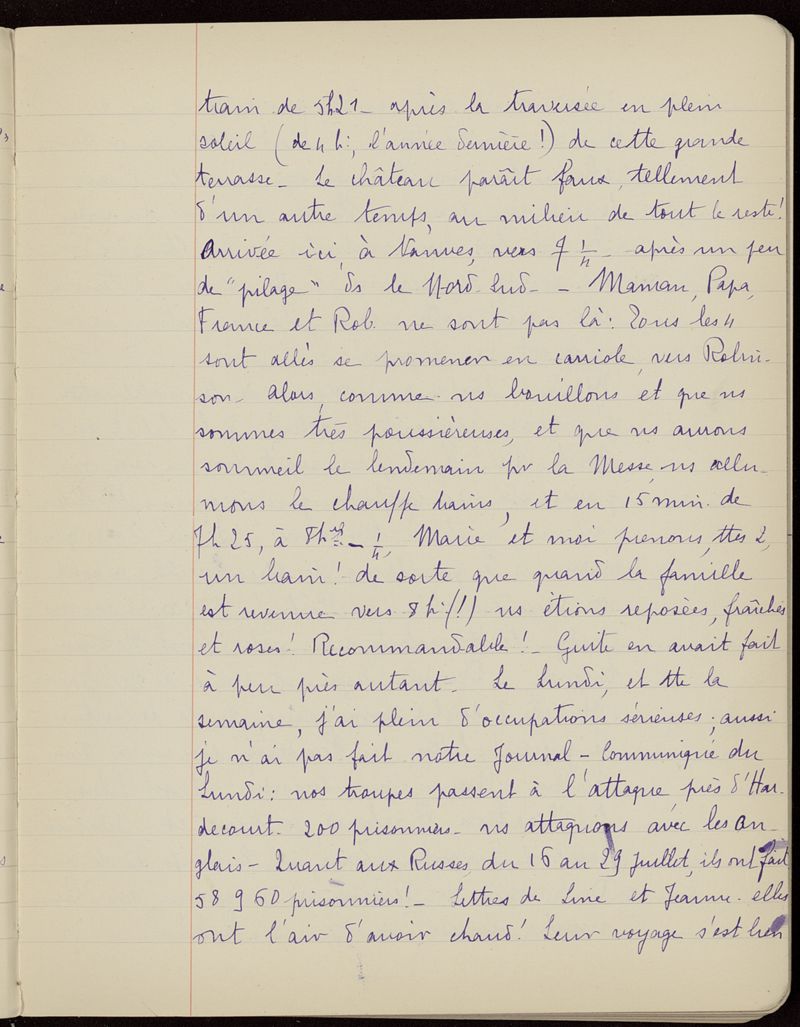 train de 5h21 - après la traversée en plein
soleil (de 4 h:, l'année dernière!) de cette grande
terrasse - Le château paraît faux, tellement
d'un autre temps, au milieu de tout le reste!
Arrivée ici, à Vanves, vers 7 1/4 - après un peu
de "pilage" ds le Nord-Sud - - Maman, Papa,
France et Rob. ne sont pas là: Tous les 4
sont allés se promener en carriole, vers Robin-
son - Alors, comme ns bouillons et que ns
sommes très poussiéreuses, et que ns aurons
sommeil le lendemain pr la Messe, ns allu-
mons le chauffe bains, et en 15 min. de
7h 25, à 8h - 1/4, Marie et moi prenons, ttes 2,
un bain! de sorte que quand la famille
est revenue vers 8 h: (!) ns étions reposées, fraîches
et roses! Recommandable! - Guite en avait fait
à peu près autant - Le Lundi, et tte la
semaine, j'ai plein d'occupations sérieuses; aussi
je n'ai pas fait notre Journal - Communiqué du
Lundi: nos troupes passent à l'attaque près d'Har-
decourt - 200 prisonniers - ns attaquons avec les An-
glais - Quant aux Russes, du 16 au 29 Juillet, ils ont fait
58 960 prisonniers! - Lettres de Line et Jeanne - elles
ont l'air d'avoir chaud! Leur voyage s'est bien